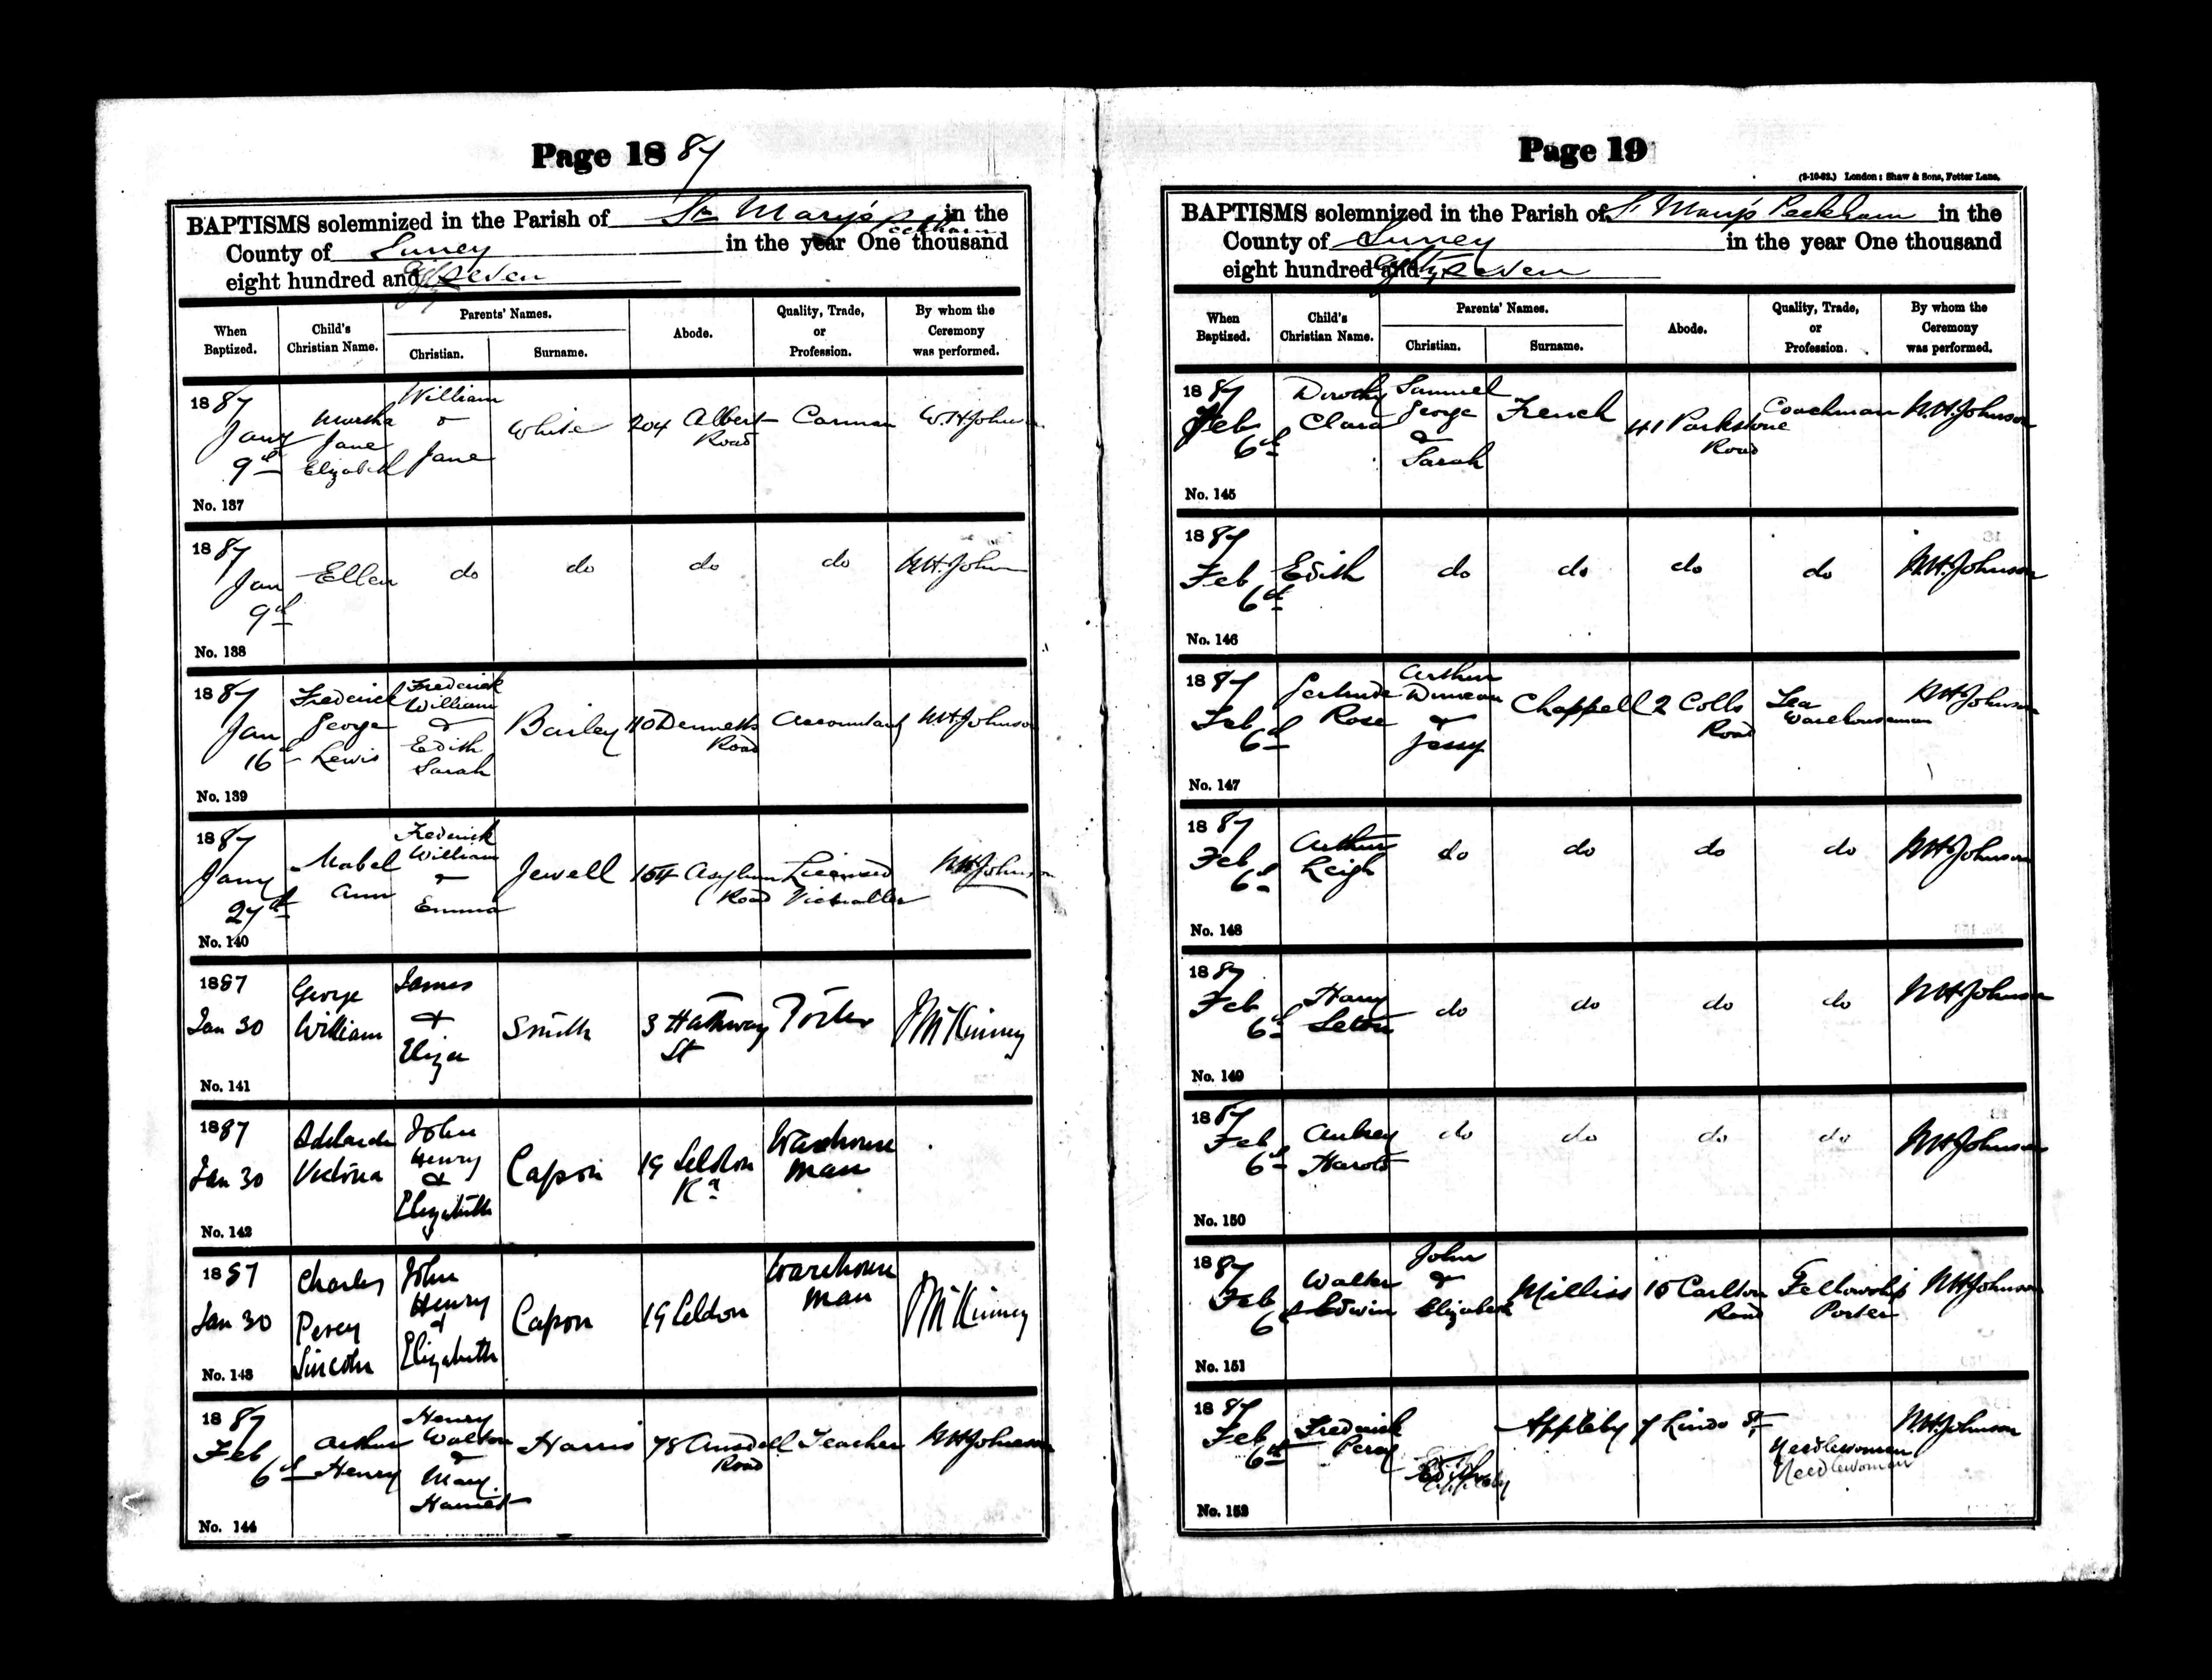 Page 18 87
BAPTISMS solemnized in the Parish of St Mary's Peckham in the
County of Surrey in the year One thousand
eight hundred and Eighty seven
When Baptized. Child's Christian Name. Parents' Names. Christian. Surname. Abode. Quality, Trade, or Profession. By whom the Ceremony was performed.
1887 Jany 9th Martha Jane Elizabeth William & Jane White 204 Albert Road Carman W.H. Johnson
No. 137
1887 Jan 9th Ellen do do do do W.H. Johnson
No. 138
1887 Jan 16th Frederick George Lewis Frederick William & Edith Sarah Bailey 110 Dennetts Road Accountant W.H. Johnson
No. 139
1887 Jany 27th Mabel Ann Frederick William & Emma Jewell 154 Asylum Road Licensed Victualler W.H. Johnson
No. 140
1887 Jan 30 George William James & Eliza Smith 3 Hathway St Porter J McKinney
No. 141
1887 Jan 30 Adelaide Victoria John Henry & Elizabeth Capon 19 Seldon Rd Warehouse man
No. 142
1887 Jan 30 Charles Percy Lincoln John Henry & Elizabeth Capon 19 Seldon Warehouse man J McKinney
No. 143
1887 Feb 6th Arthur Henry Henry Walton & Mary Harriet Harris 78 Ansdell Road Teacher W.H. Johnson
No. 144
Page 19
(3-10-83.) London: Shaw & Sons, Fetter Lane.
BAPTISMS solemnized in the Parish of St Mary's Peckham in the
County of Surrey in the year One thousand
eight hundred and Eighty seven
When Baptized. Child's Christian Name. Parents' Names. Christian. Surname. Abode. Quality, Trade, or Profession. By whom the Ceremony was performed.
1887 Feb 6th Dorothy Clara Samuel George & Sarah French 41 Parkstone Road Coachman W.H. Johnson
No. 145
1887 Feb 6th Edith do do do do W.H. Johnson
No. 146
1887 Feb 6th Gertrude Rose Arthur Duncan & Jessy Chappell 2 Colls Road Tea Warehouseman W.H. Johnson
No. 147
1887 Feb 6th Arthur Leigh do do do do W.H. Johnson
No. 148
1887 Feb 6th Harry Seton do do do do W.H. Johnson
No. 149
1887 Feb 6th Aubrey Harold do do do do W.H. Johnson
No. 150
1887 Feb 6th Walter Edwin John & Elizabeth Milliss 10 Carlton Road Fellowship Porter W.H. Johnson
No. 151
1887 Feb 6th Frederick Percy Edith Appleby Appleby 7 Lindo St Needlewoman Needlewoman W.H. Johnson
No. 152